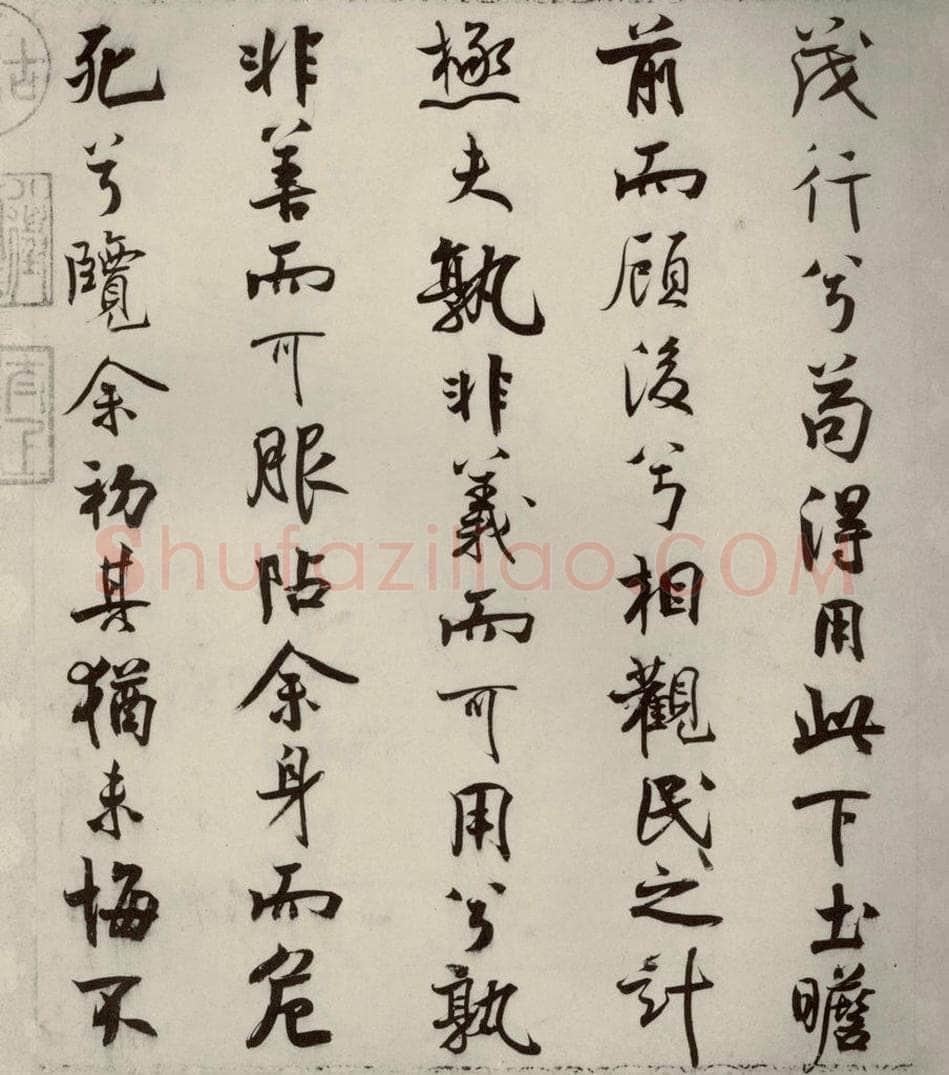 茂行兮苟得用此下土瞻
前而顧後兮相觀民之計
極夫孰非義而可用兮孰
非善而可服阽余身而危
死兮覽余初其猶未悔不
Shufaziliao.COM